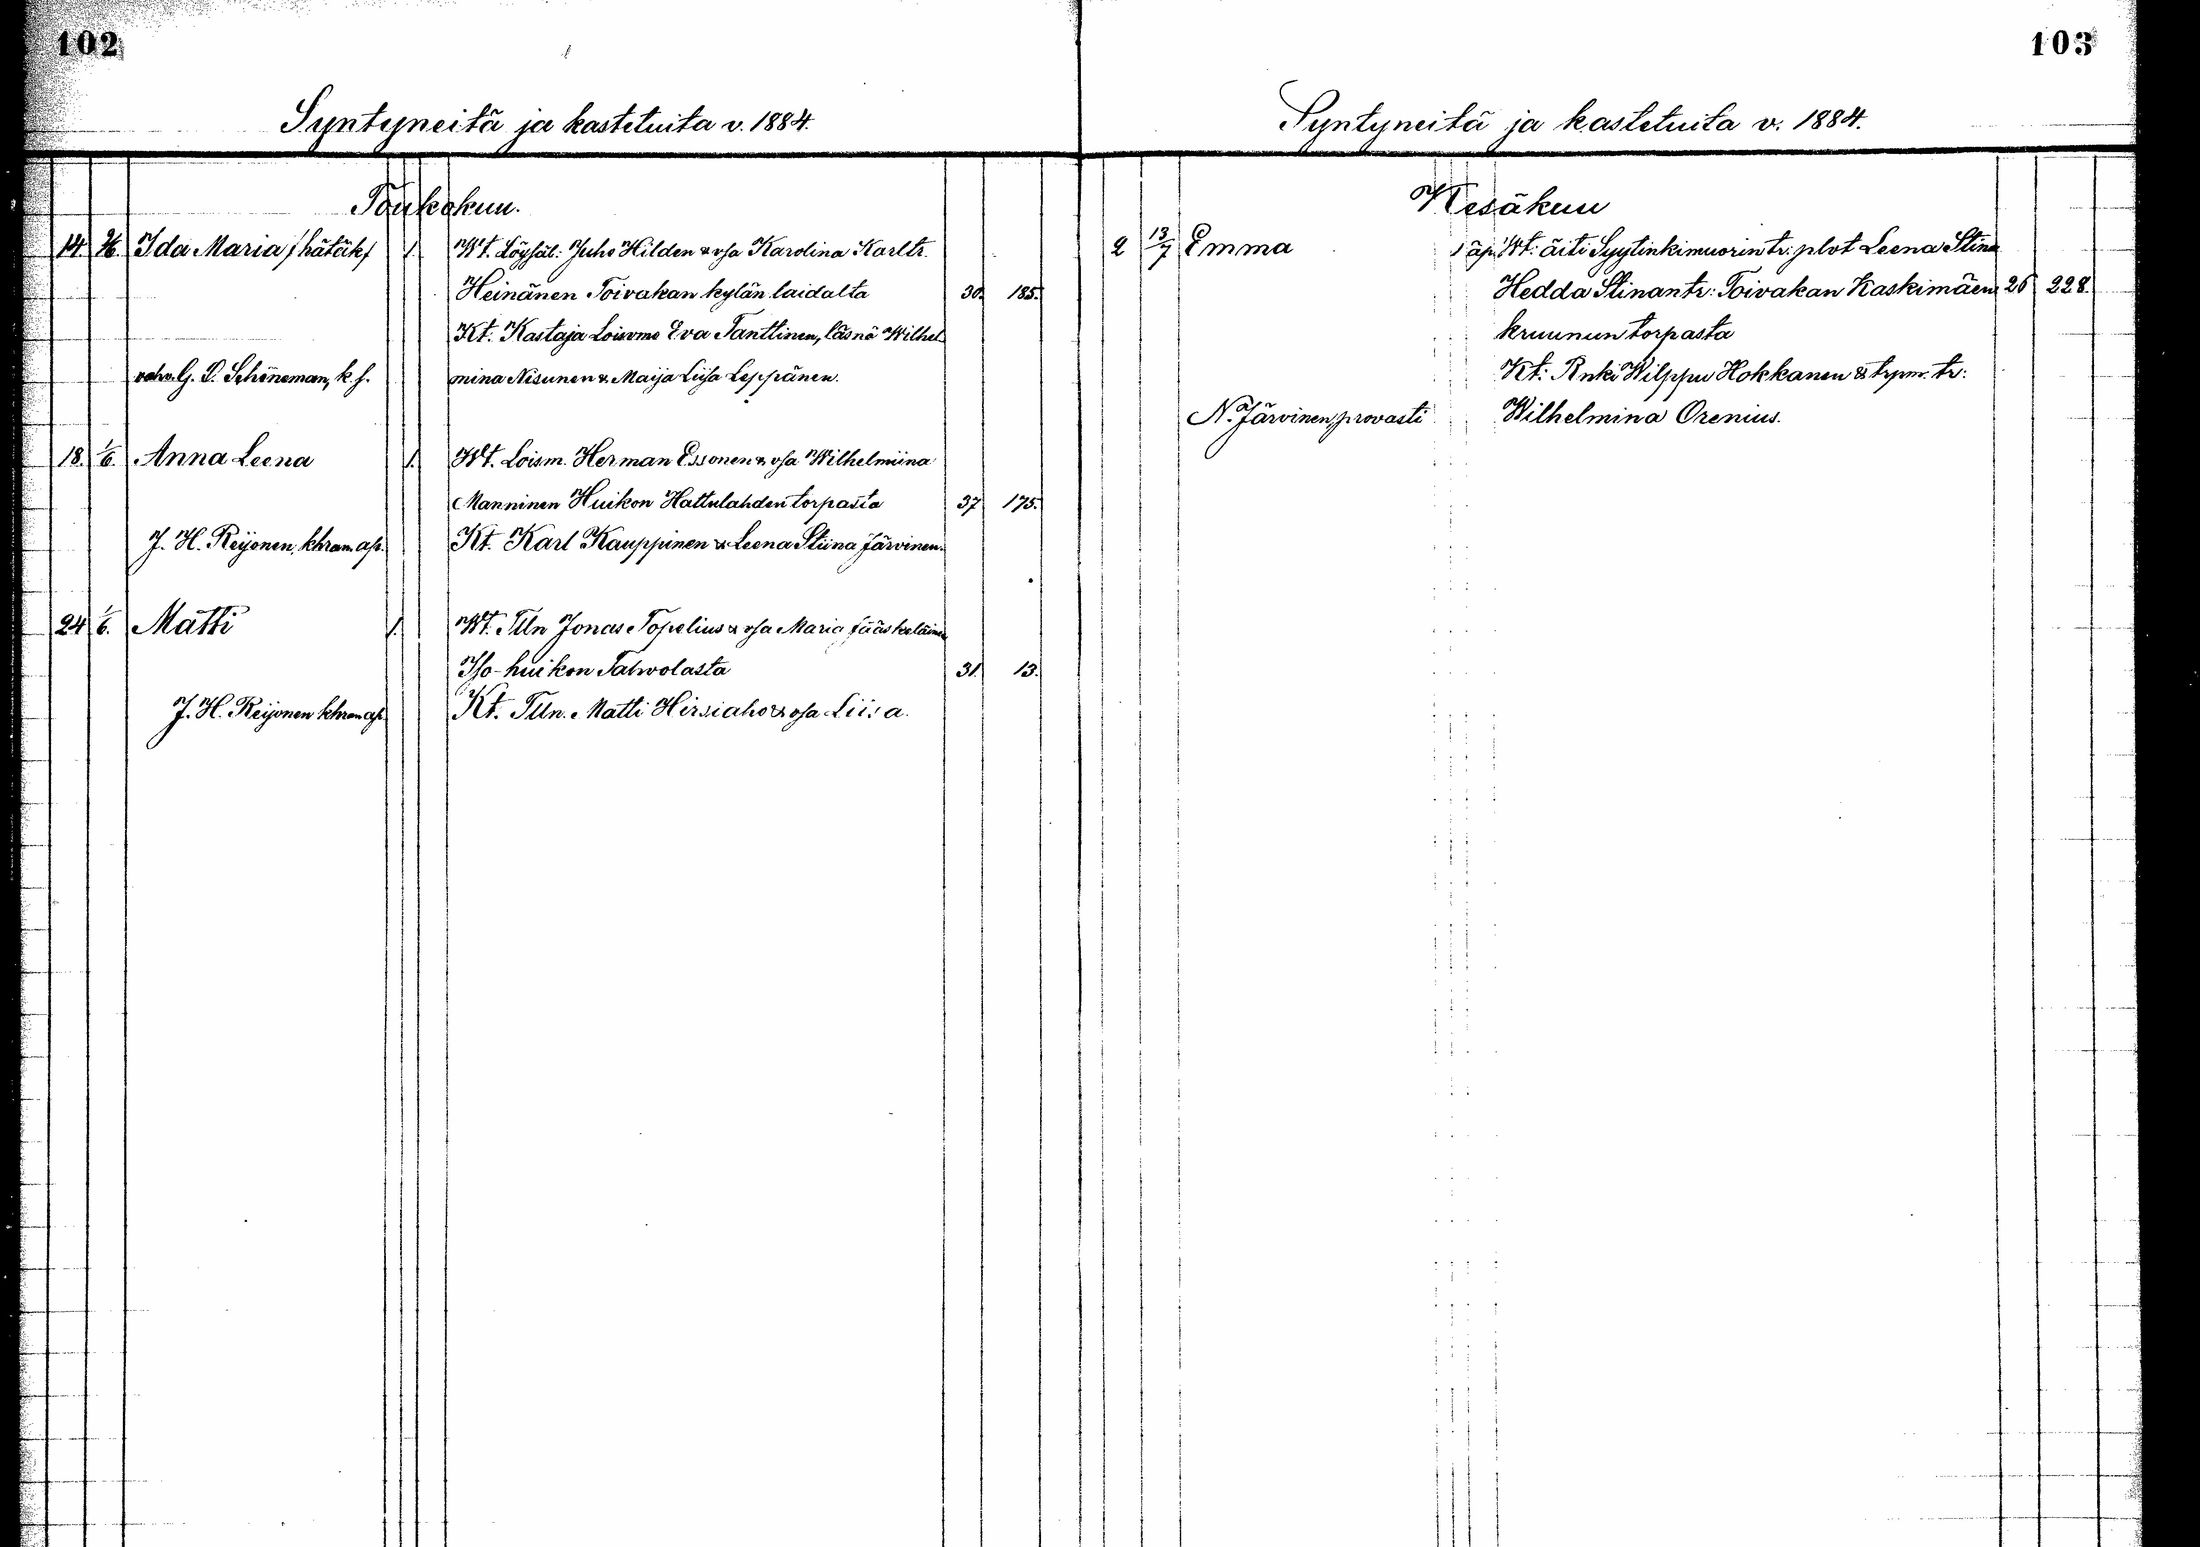 102
Syntyneitä ja kastetuita v. 1884.
Toukokuu.
14. Ida Maria /hätäk/ 1. Wt. Löysäl: Juho Hilden & vsa Karolina Karltr.
Heinänen Toivakan kylän laidalta 30. 185.
Kt: Kastaja Loisvmo Eva Tanttinen, läsnä Wilhel
vahv. G. D. Schöneman, k. h. mina Nisunen & Maija Liisa Leppänen.
18. 1/6. Anna Leena 1. Wt. Loism. Herman Essonen & vsa Wilhelmiina
Manninen Huikon Hattulahden torpasta 37 175.
J. H. Reijonen, khran ap. Kt. Karl Kauppinen & Leena Stiina Järvinen.
24 1/6. Matti 1. Wt. Tlln Jonas Topelius & vsa Maria Jääskeläinen
Iso-huikon Talwolasta 31. 13.
J. H. Reijonen khran ap. Kt. Tlln. Matti Hirsiaho & vsa Liisa.
103
Syntyneitä ja kastetuita v. 1884.
Kesäkuu
2 13/7 Emma 1 äp. Wt: äiti Syytinkimuorin tr: plvt Leena Stina
Hedda Stinantr: Toivakan Kaskimäen 26 228.
kruunun torpasta
Kt: Rnki Wilppu Hokkanen & trpm. tr:
N. Järvinen, provasti Wilhelmina Orenius.